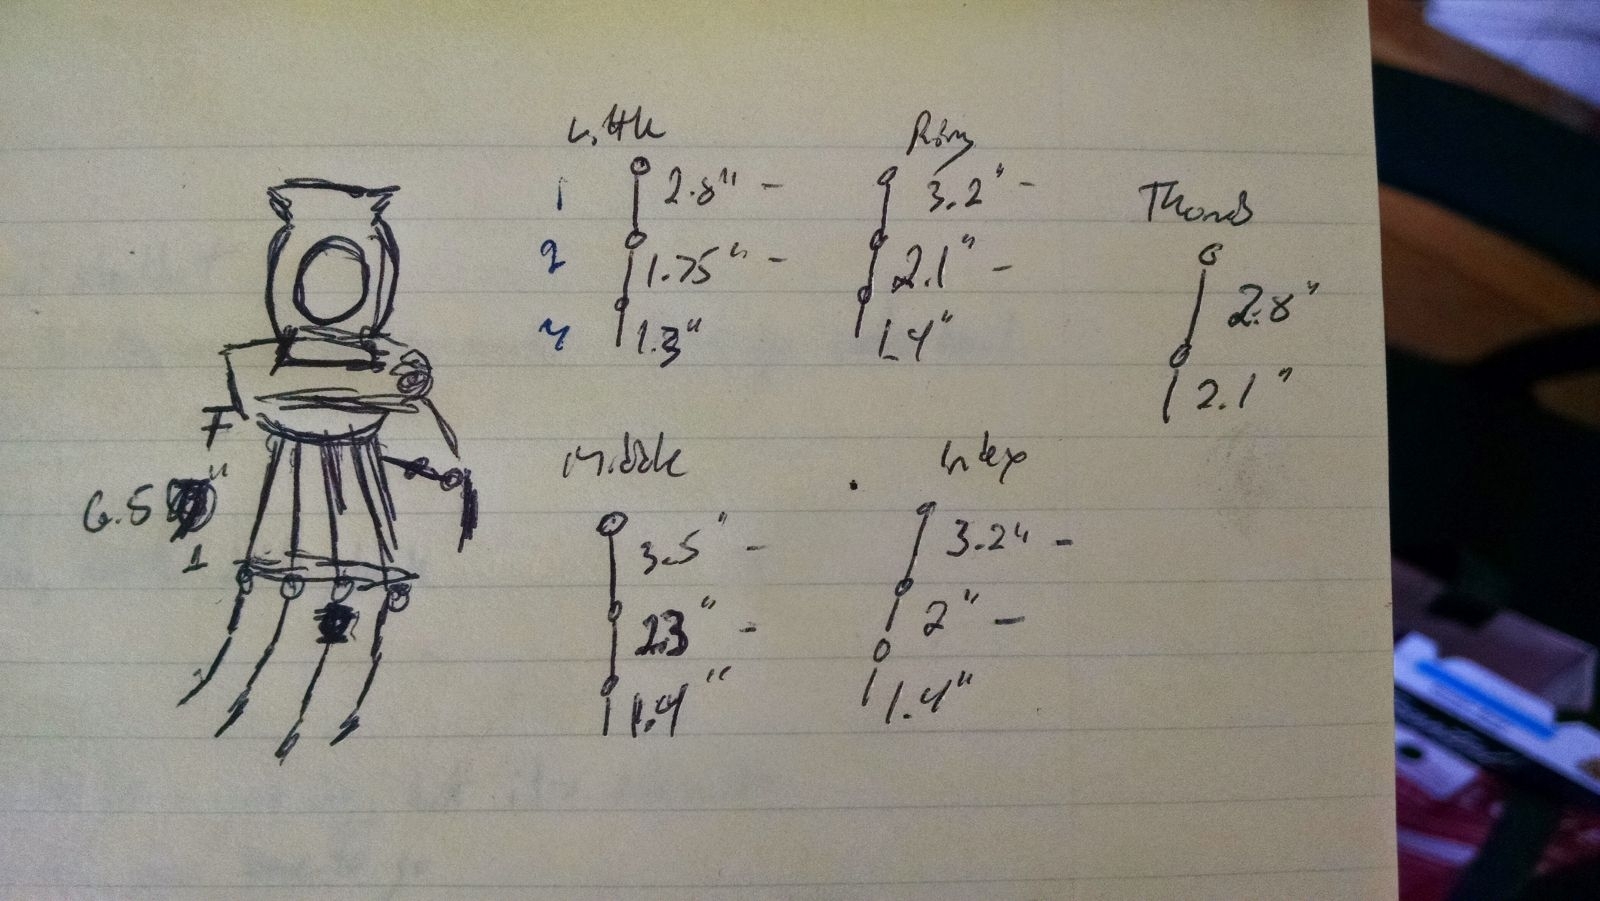 Little
1 2.8" -
2 1.75" -
1.3"
Ring
3.2" -
2.1" -
1.4"
Thumb
2.8"
2.1"
6.5"
Middle
3.5" -
2.3" -
1.4"
Index
3.2" -
2" -
1.4"